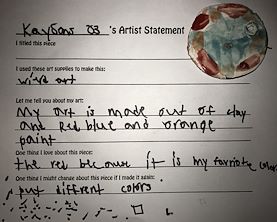 Kaydons 03 's Artist Statement
I titled this piece
I used these art supplies to make this:
wire art
Let me tell you about my art:
My art is made out of clay
and red blue and orange
paint
One thing I love about this piece:
the red because it is my favriote color
One thing I might change about this piece if I made it again:
put different colors